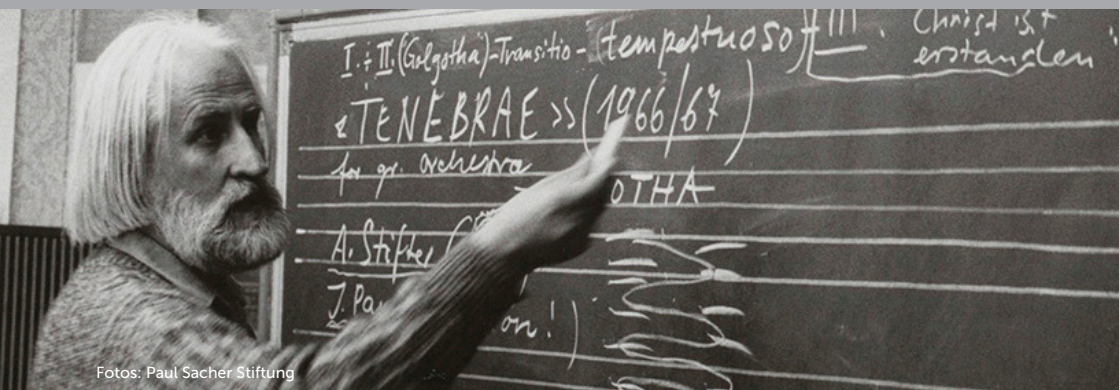 I. ÷ II. (Golgotha)-Transitio-(tempestuoso)-III. Christ ist
erstanden"
«TENEBRAE» (1966/67)
for gr. Orchestra
OTHA
A. Stifter (
J. Pa
on!)
Fotos: Paul Sacher Stiftung